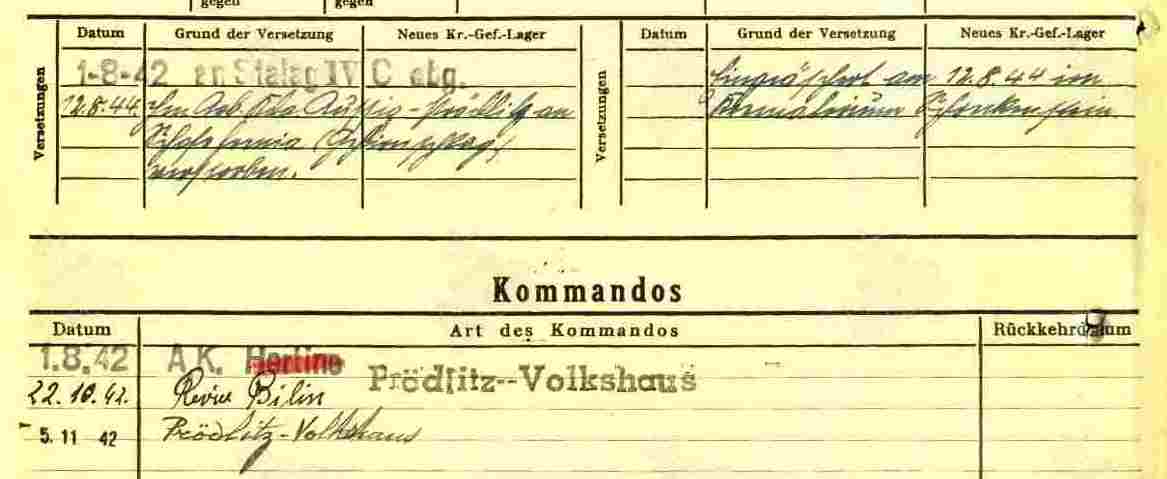 gegen gegen
Datum Grund der Versetzung Neues Kr.-Gef.-Lager Datum Grund der Versetzung Neues Kr.-Gef.-Lager
Versetzungen
1-8-42 an Stalag IV C abg.
12.8.44. Im Arb. Kdo Aussig-Prödlitz an
verstorben.
Versetzungen
Eingeäschert am 12.8.44 im
Krematorium Schreckenstein
Kommandos
Datum Art des Kommandos Rückkehrdatum
1.8.42 A.K. Hertine Prödlitz--Volkshaus
22.10.42. Revier Bilin
5.11 42 Prödlitz-Volkshaus